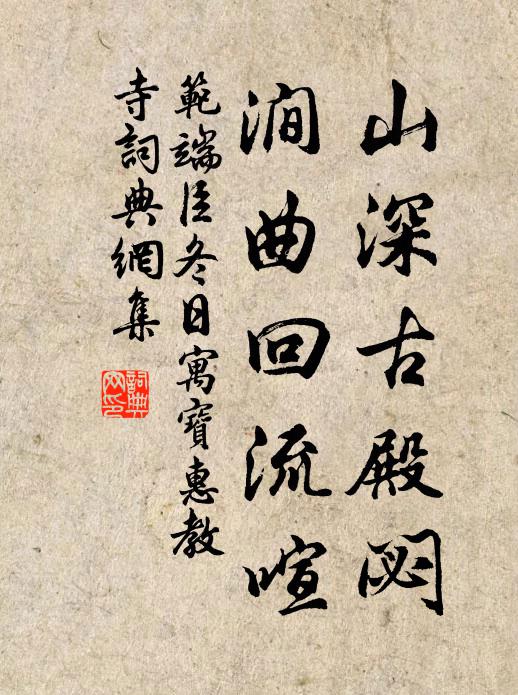 山深古殿閟
澗曲回流喧
範端臣冬日寓寶惠教
寺詞典網集
詞典
网印